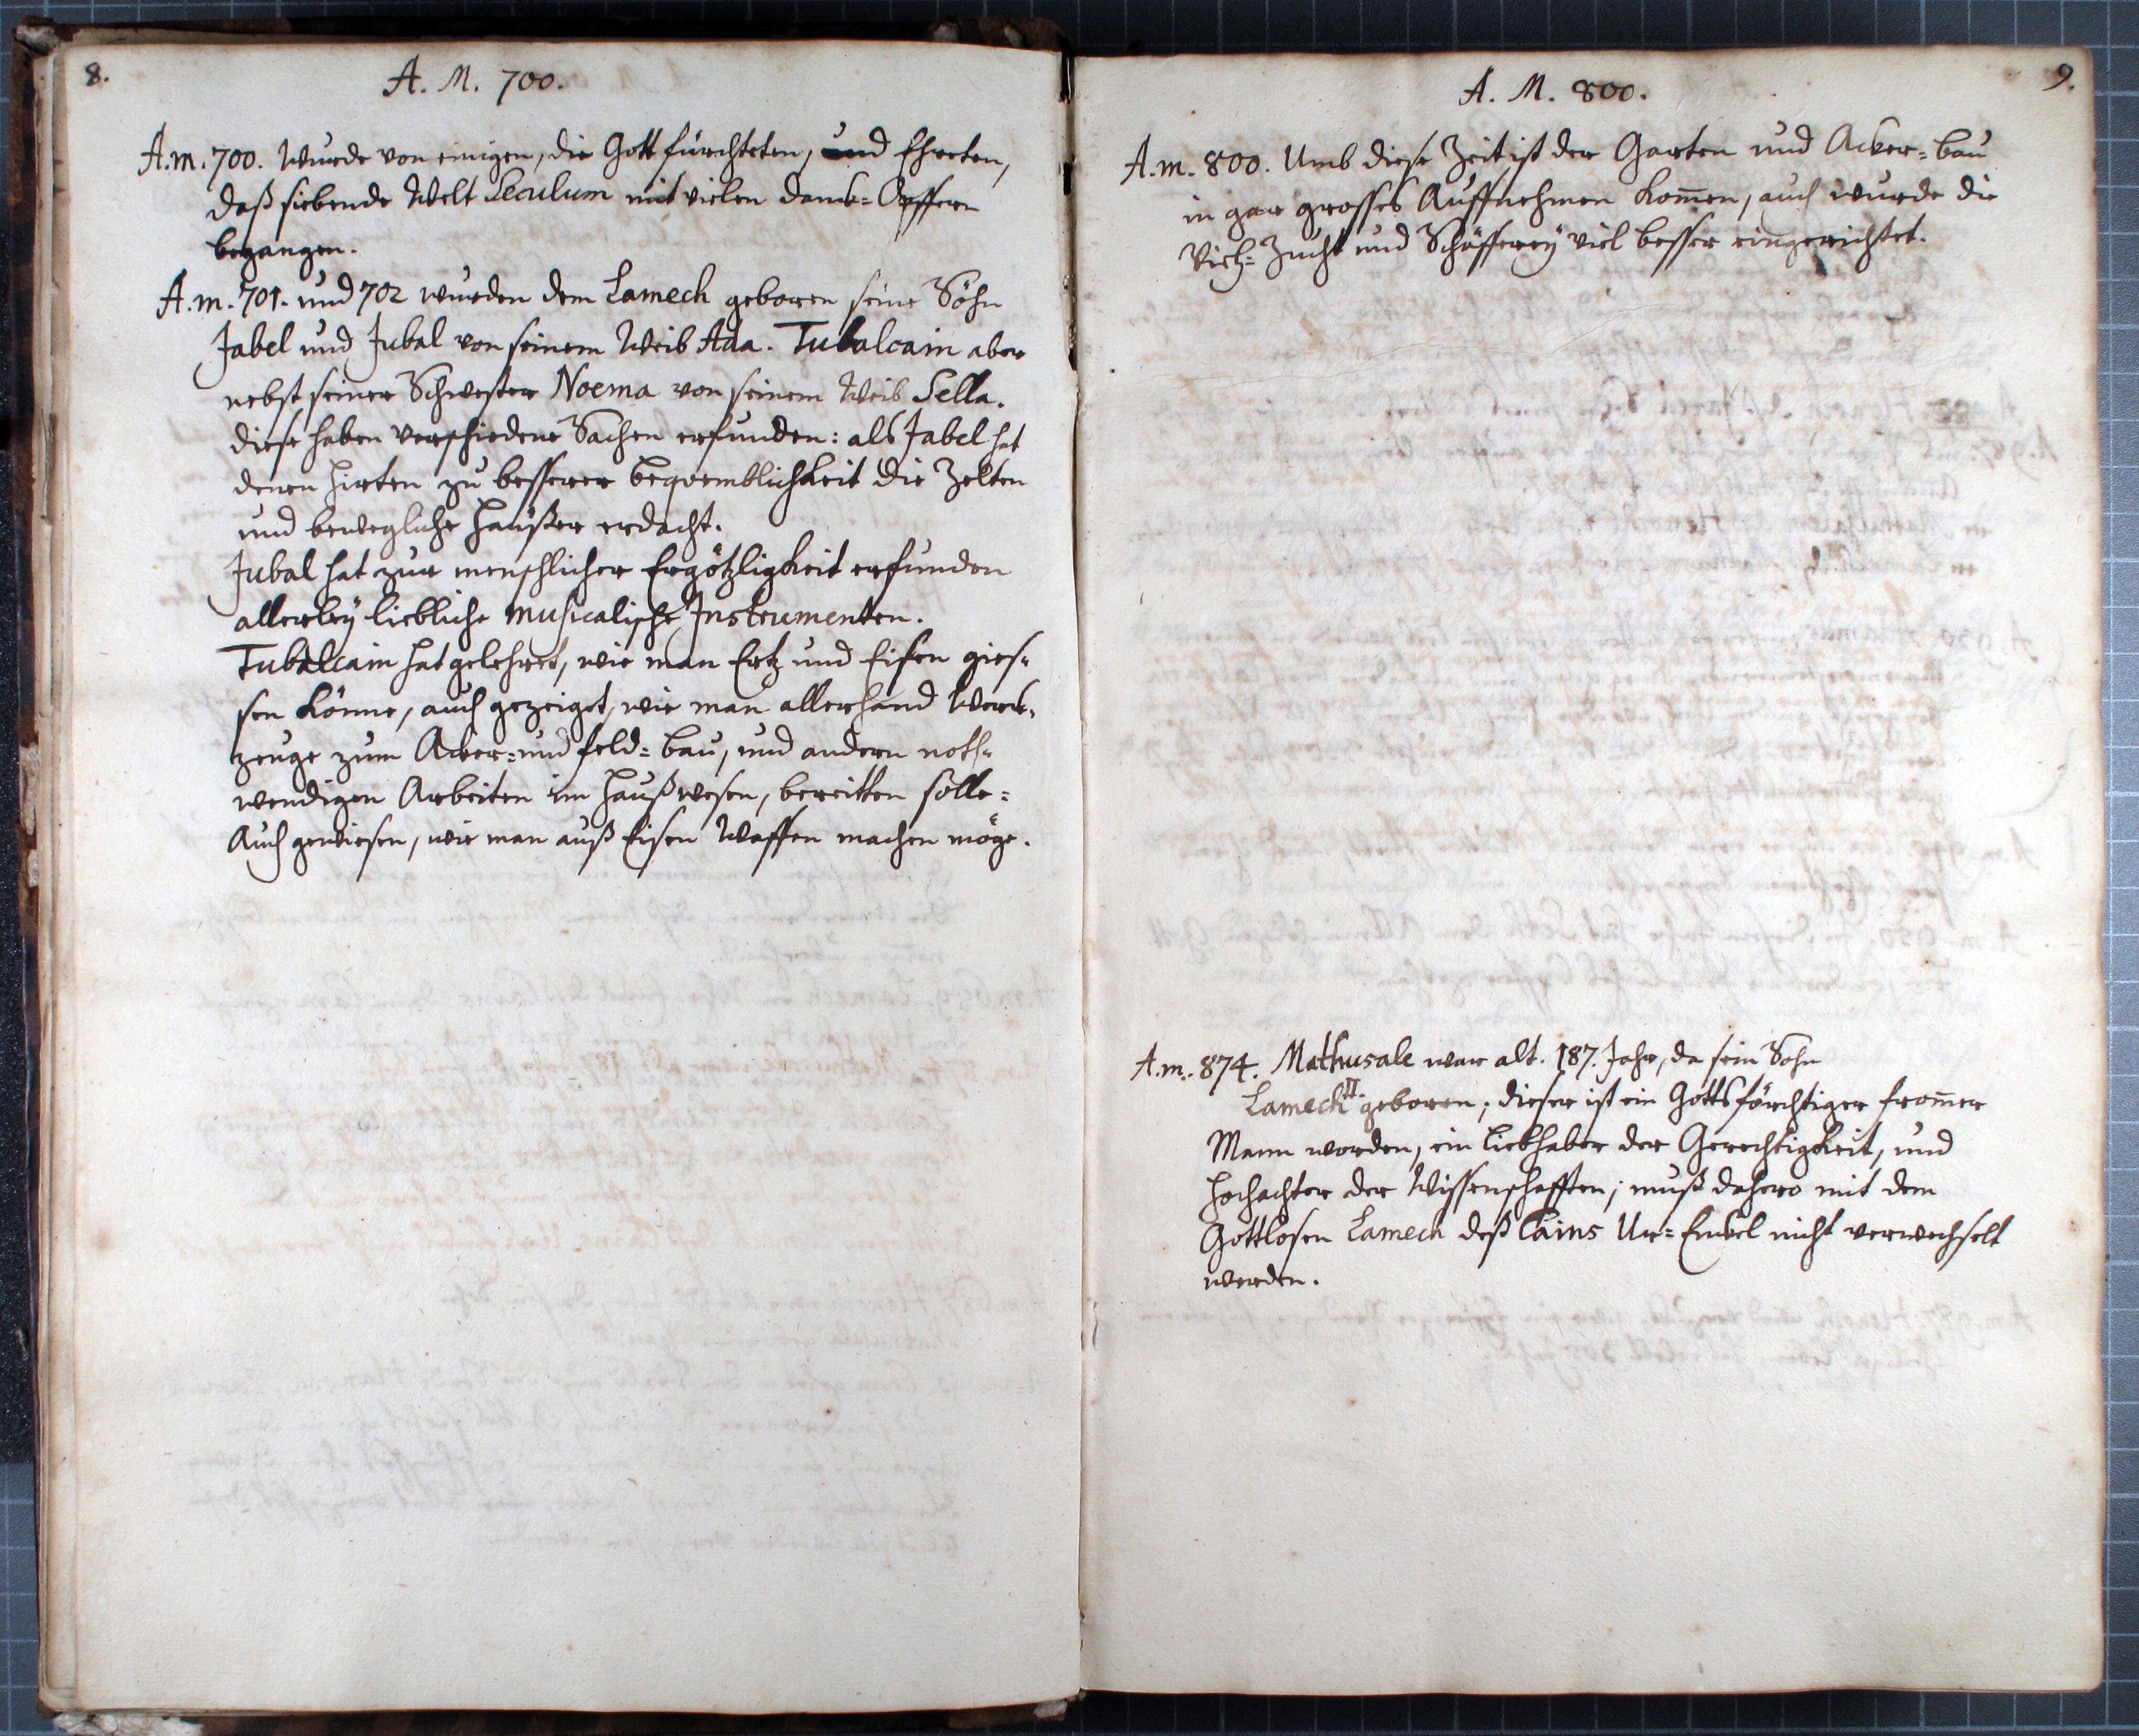 8.
A. M. 700.
A.m. 700. Wurde von einigen, die Gott fürchteten, und Ehreten,
daß siebende Welt Seculum mit vielen danck=Opffern
begangen.
A.m. 701. und 702 wurden dem Lamech geboren seine Söhn
Jabel und Jubal von seinem Weib Ada. Tubalcain aber
nebst seiner Schwester Noema von seinem Weib Sella.
diese haben verschiedene Sachen erfunden: als Jabel hat
denen Hirten zu besserer beqvemblichkeit die Zelten
und bewegliche Haüßer erdacht.
Jubal hat zur menschlicher Ergötzligkeit erfunden
allerleÿ liebliche musicalische Instrumenten.
Tubalcain hat gelehret, wie man Ertz und Eisen gies=
sen könne, auch gezeiget, wie man allerhand Werck=
zeuge zum Acker= und feld=bau, und andern noth=
wendigen Arbeiten im Haußwesen, bereitten solle=
Auch gewiesen, wie man auß Eisen Waffen machen möge.
9.
A. M. 800.
A.m. 800. Umb diese Zeit ist der Garten und Acker=bau
in gar grosses Auffnehmen kom̄en, auch wurde die
Vieh=Zucht und Schäffereÿ viel besser eingerichtet.
A.m. 874. Mathusale war alt. 187. Jahr, da sein Sohn
Lamech II. geboren; dieser ist ein Gottsförchtiger from̄er
Mann worden, ein Liebhaber der Gerechtigkeit, und
Hochachter der Wissenschafften; muß dahero mit dem
Gottlosen Lamech deß Cains Ur=Enckel nicht verwechselt
werden.